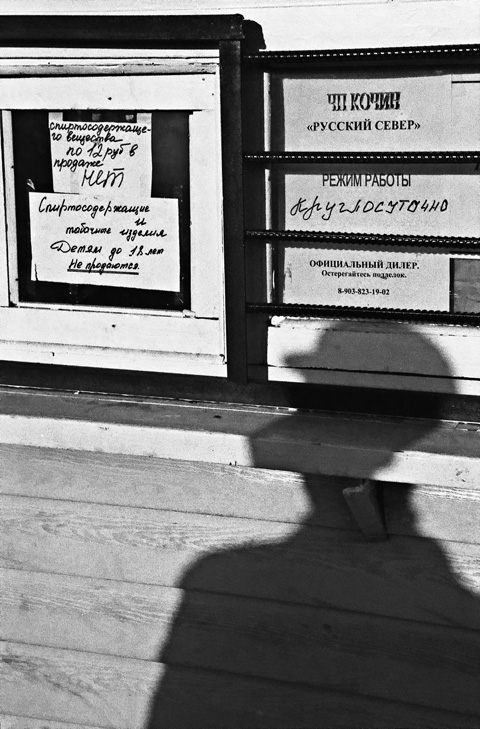 спиртосодержаще-
го вещества
по 12 руб в
продаже
нет
Спиртосодержащие
и
табочные изделия
Детям до 18 лет
Не продаются.
ЧП КОЧИН
«РУССКИЙ СЕВЕР»
РЕЖИМ РАБОТЫ
КРУГЛОСУТОЧНО
ОФИЦИАЛЬНЫЙ ДИЛЕР.
Остерегайтесь подделок.
8-903-823-19-02